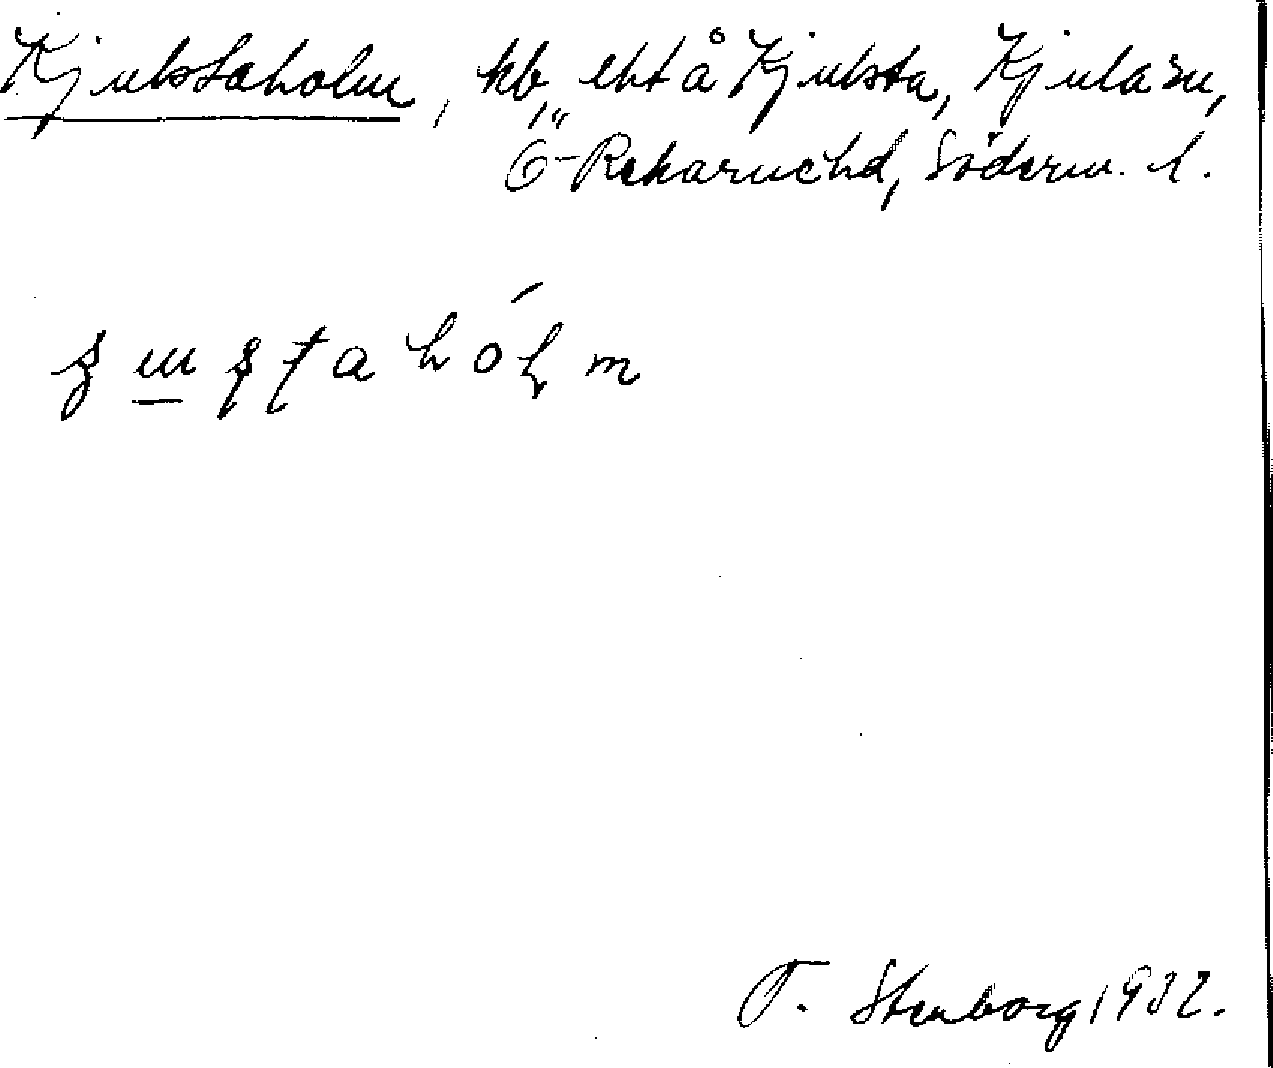 Kjulstaholm, kb, eht å Kjulsta, Kjula sn,
Ö-Rekarne hd, Söderm. l.
T. Stenborg 1932.